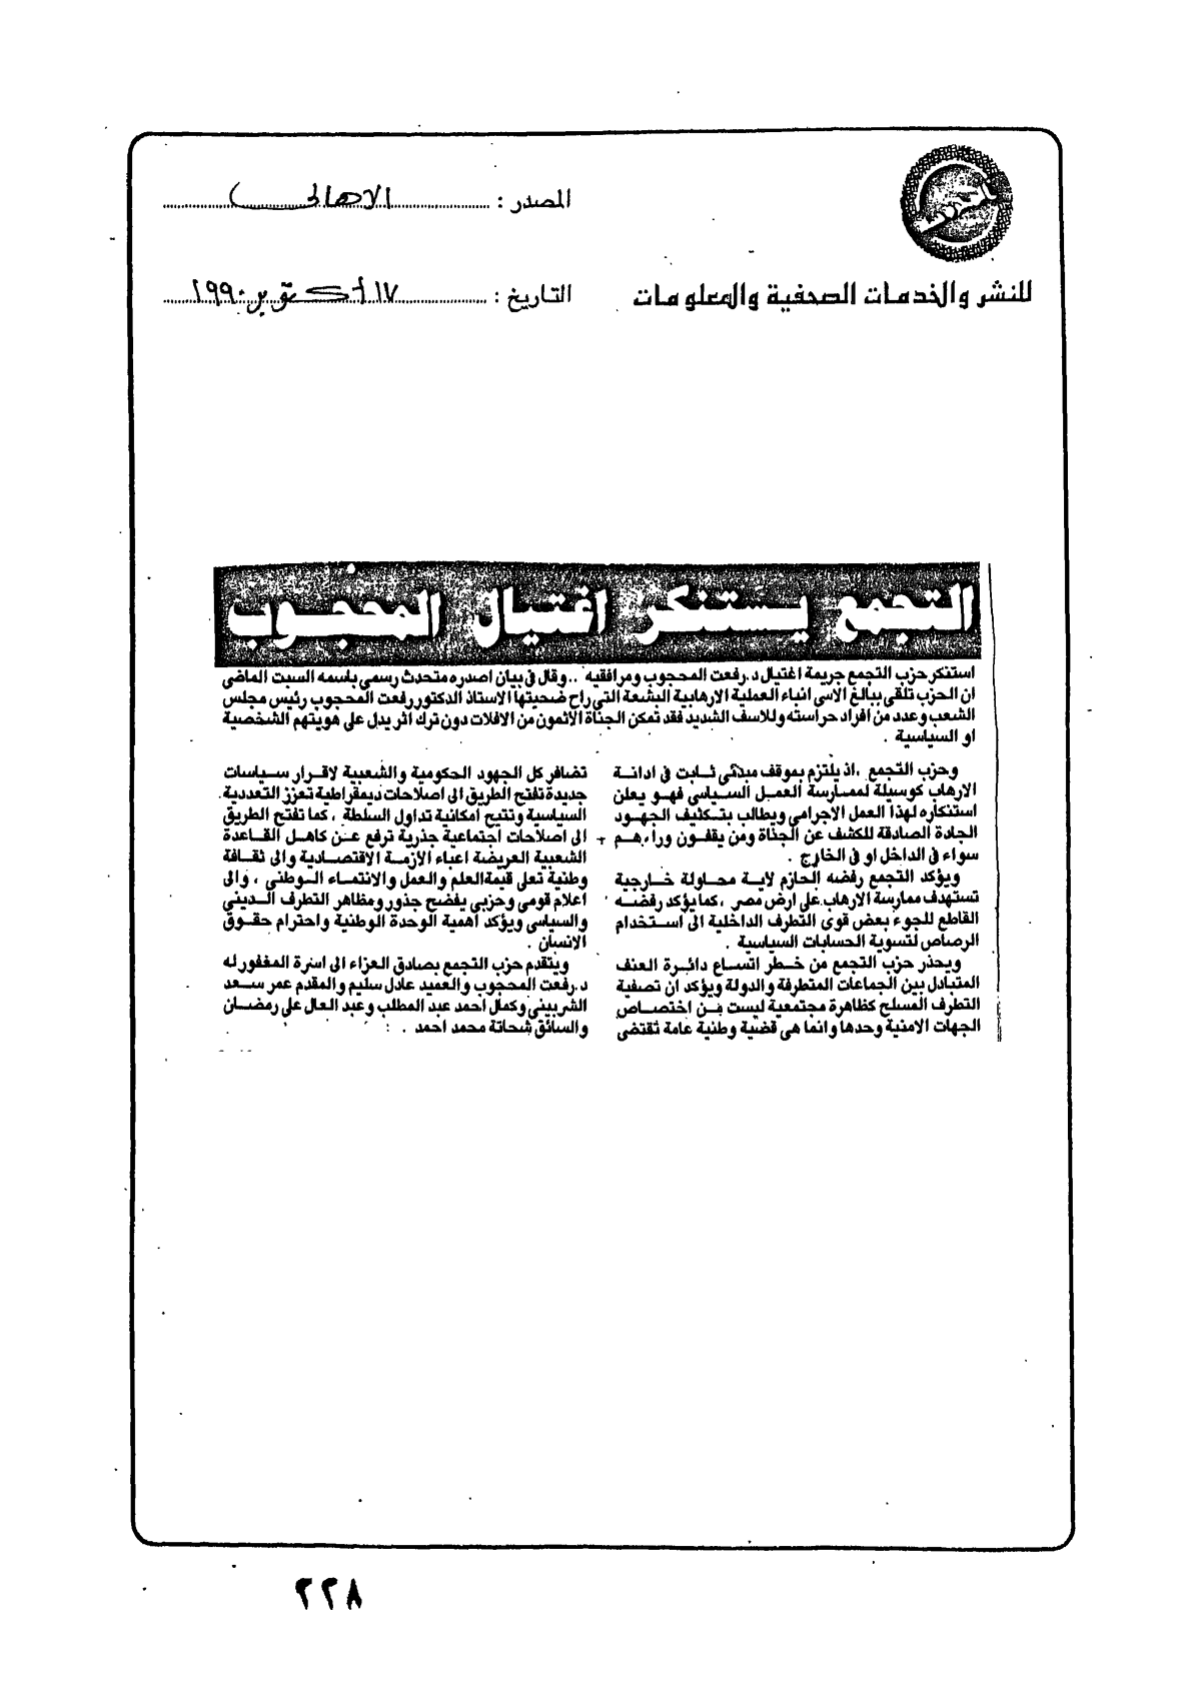 المصدر : الاهالى
للنشر والخدمات الصحفية والمعلومات
التاريخ : ١٧ أكتوبر ١٩٩٠
التجمع يستنكر اغتيال المحجوب
استنكر حزب التجمع جريمة اغتيال د.رفعت المحجوب ومرافقيه ..وقال فى بيان اصدره متحدث رسمى باسمه السبت الماضى
ان الحزب تلقى ببالغ الاسى انباء العملية الارهابية البشعة التى راح ضحيتها الاستاذ الدكتور رفعت المحجوب رئيس مجلس
الشعب وعدد من افراد حراسته وللاسف الشديد فقد تمكن الجناة الاثمون من الافلات دون ترك اثر يدل على هويتهم الشخصية
او السياسية .
وحزب التجمع ،اذ يلتزم بموقف مبدئى ثـابت فى ادانـة
الارهاب كوسيلة لممـارسـة العمـل السيـاسى فهـو يعلن
استنكاره لهذا العمل الاجرامى ويطالب بتـكثيف الجهـود
الجادة الصادقة للكشف عن الجناة ومن يقفـون وراءهـم
سواء فى الداخل او فى الخارج .
ويؤكد التجمع رفضه الحازم لاية محـاولة خـارجية
تستهدف ممارسة الارهاب على ارض مصر ،كما يؤكد رفضـه
القاطع للجوء بعض قوى التطرف الداخلية الى استـخدام
الرصاص لتسوية الحسابات السياسية .
ويحذر حزب التجمع من خـطر اتسـاع دائـرة العنف
المتبادل بين الجماعات المتطرفة والدولة ويؤكد ان تصفية
التطرف المسلح كظاهرة مجتمعية ليست من اختصـاص
الجهات الامنية وحدها وانما هى قضية وطنية عامة تقتضى
تضافر كل الجهود الحكومية والشعبية لاقـرار سيـاسات
جديدة تفتح الطريق الى اصلاحات ديمقراطية تعزز التعددية
السياسية وتتيح امكانية تداول السلطة ، كما تفتح الطريق
الى اصلاحات اجتماعية جذرية ترفع عـن كاهـل القـاعدة
الشعبية العريضة اعباء الأزمـة الاقتصـادية والى ثقـافة
وطنية تعلى قيمة العلم والعمل والانتمـاء الـوطنى ، والى
اعلام قومى وحزبى يفضح جذور ومظاهر التطرف الـدينى
والسياسى ويؤكد اهمية الوحدة الوطنية واحترام حقـوق
الانسان .
ويتقدم حزب التجمع بصادق العزاء الى اسرة المغفور له
د.رفعت المحجوب والعميد عادل سليم والمقدم عمر سـعد
الشربينى وكمال احمد عبد المطلب وعبد العال على رمضـان
والسائق شحاتة محمد احمد .
٢٢٨